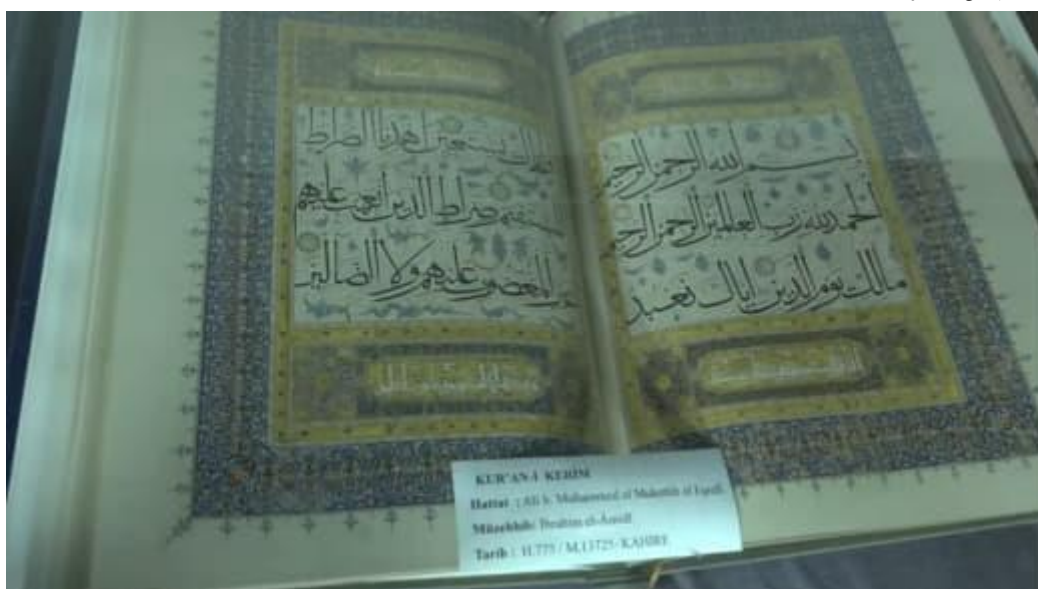 بسم الله الرحمن الرحيم
الحمد لله رب العالمين الرحمن الرحيم
مالك يوم الدين اياك نعبد
نستعين اهدنا الصراط
المستقيم صراط الذين أنعمت عليهم
غير المغضوب عليهم ولا الضالين
KUR'AN-İ KERİM
Hattat : Ali b. Muhammed al Mukettib al
Müzehhib: İbrahim el-Âmidî
Tarih : H.775 / M.13725- KAHİRE